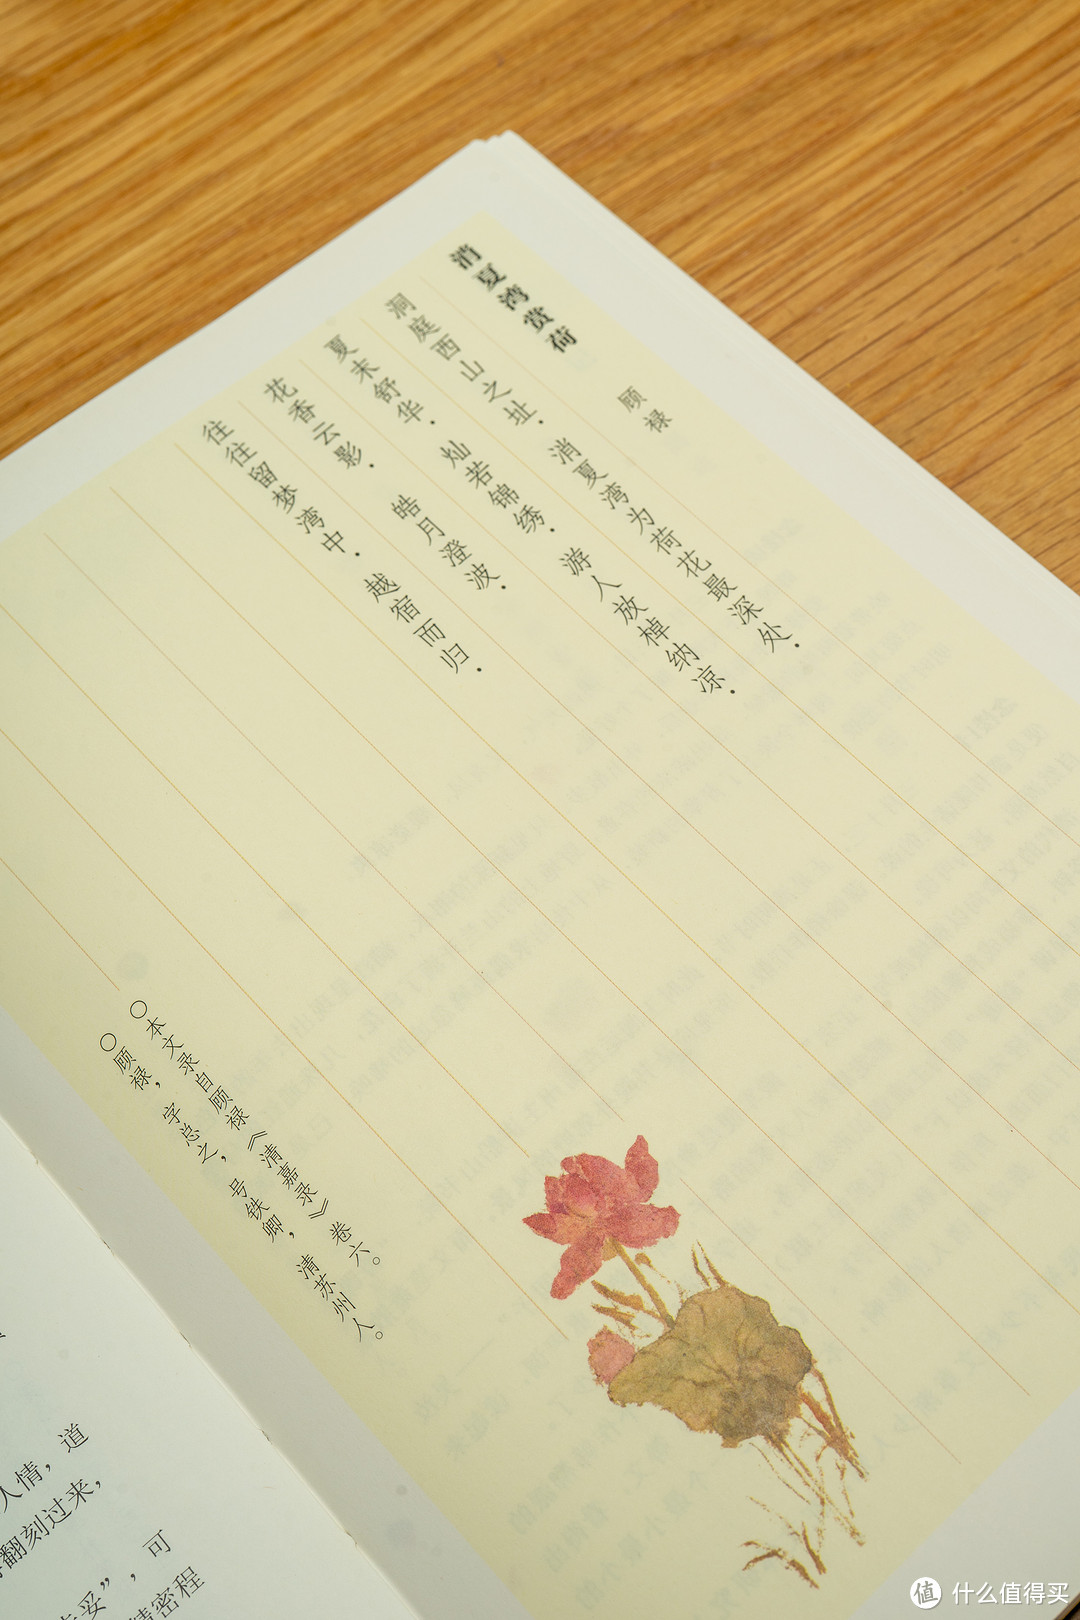 消夏湾赏荷
顾禄
洞庭西山之址．消夏湾为荷花最深处．
夏末舒华．灿若锦绣．游人放棹纳凉．
花香云影．皓月澄波．
往往留梦湾中．越宿而归．
〇本文录自顾禄《清嘉录》卷六。
〇顾禄，字总之，号铁卿，清苏州人。
人情，道
翻刻过来，
妥”，可
密程
值 什么值得买